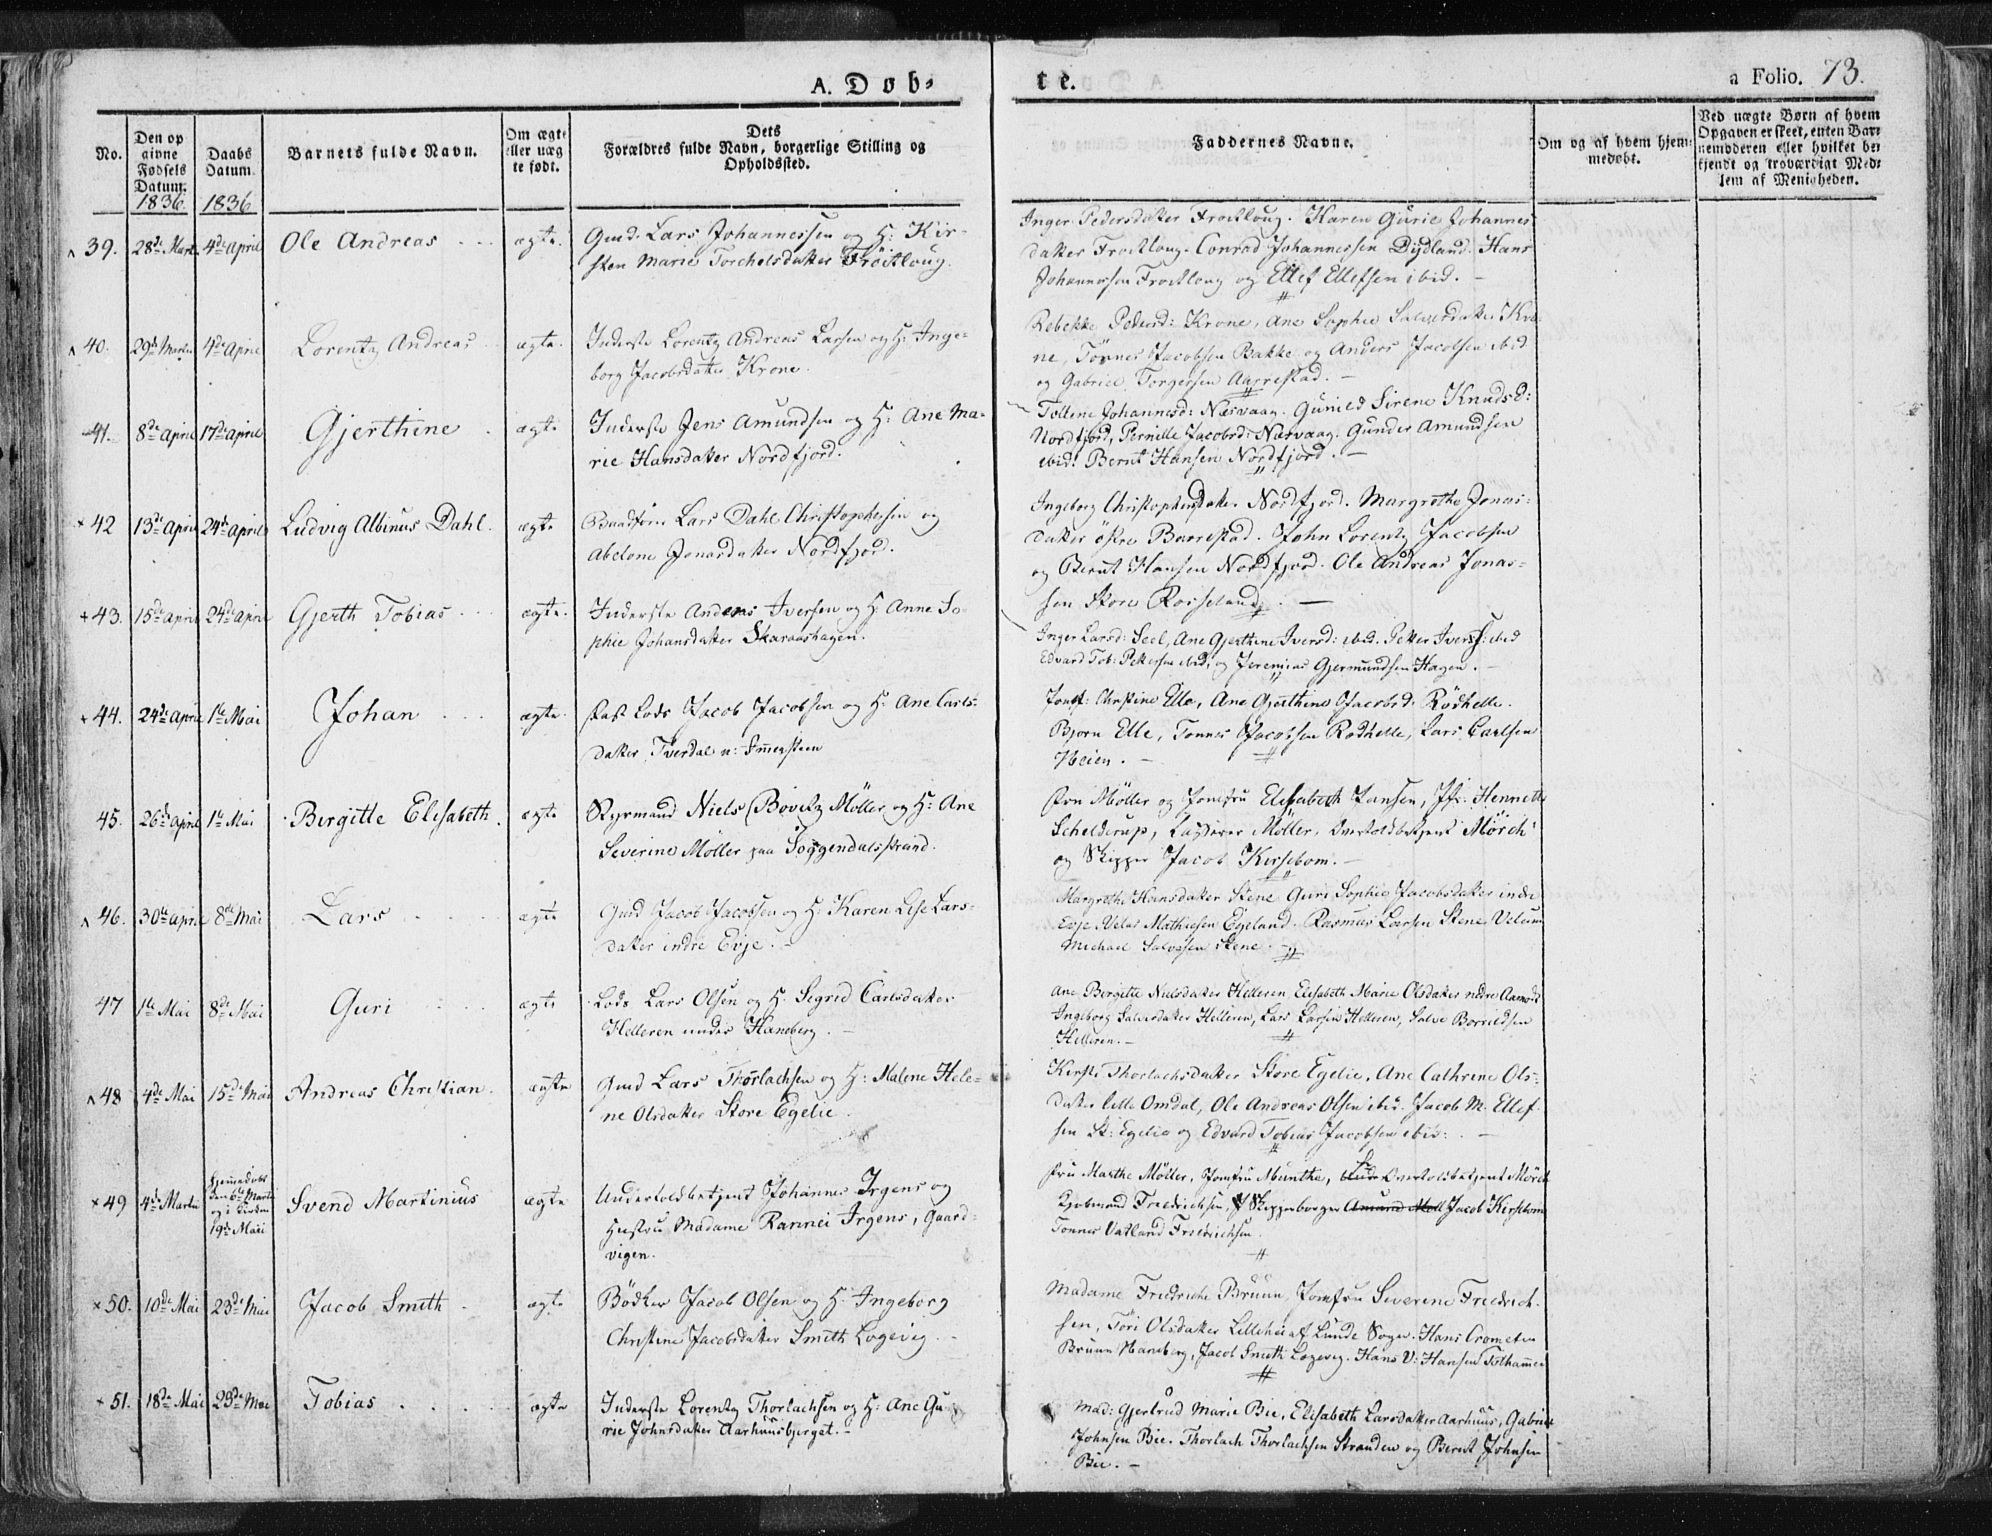 A. Døb-
te.
a Folio. 73.
No.
Den op
givne
Fødsels
Datum.
1836
Daabs
Datum.
1836
Barnets fulde Navn.
Om ægte
eller uæg
te født.
Dets
Forældres fulde Navn, borgerlige Stilling og
Opholdssted.
Faddernes Navne.
Om og af hvem hjem-
medøbt.
Ved uægte Børn af hvem
Opgaven er skeet, enten Bar-
nemoderen eller hvilket be-
kjendt og troværdigt Med-
lem af Menigheden.
39. 28de Mart. 4de April Ole Andreas ægte.
Gmd. Lars Johannessen og H: Kir-
sten Marie Torchelsdatter Froitloug.
Inger Pedersdatter Froitloug. Karen Gurie Johannes-
datter Froitloug. Conrad Johannessen Dydland. Hans
Johannessen Froitloug og Ellef Ellefsen ibid.
40. 29de Martii 4de April Lorentz Andreas ægte.
Inderste Lorentz Andreas Larsen og H: Inge-
borg Jacobsdatter Krone.
Rebekke Pedersd: Krone, Ane Sophie Salvesdatter Kro-
ne, Tönnes Jacobsen Bakke og Anders Jacobsen ibid
og Gabriel Torgersen Aarrestad.
41. 8de April 17de April Gjerthine ægte
Inderste Jens Amundsen og H: Ane Ma-
rie Hansdatter Nordfjord.
Tolline Johannesd: Næsvaag. Gunild Sirene Knudsd:
Nordfjord, Pernille Jacobsd: Næsvaag. Gunder Amundsen
ibid: Bernt Hansen Nordfjord.
42 13de April 24de April Ludvig Albinus Dahl. ægte
Baadförer Lars Dahl Christophersen og
Abelone Jonasdatter Nordfjord.
Ingeborg Christophersdatter Nordfjord. Margrethe Jonas-
datter östre Barrestad. John Lorentz Jacobsen
og Bernt Hansen Nordfjord. Ole Andreas Jonas-
sen Store Rosseland.
43. 15de April 24de April Gjerth Tobias ægte.
Inderste Anders Iversen og H: Anne So-
phie Johansdatter Skaraashagen.
Inger Larsd: Seel, Ane Gjerthine Iversd: ibid. Petter Iverss: ibid
Edvard Tob: Pettersen ibid; og Jeremias Gjermundsen Hagen.
44. 24de April 1te Mai Johan ægte.
Fast Lods Jacob Jacobsen og H: Ane Carls-
datter Tverdal
Jomf: Christine Elle, Ane Gjerthine Jacobsd: Rödhelle.
Bjorn Elle, Tonnes Jacobsen Rodhelle, Lars Carlsen
Heien.
45. 26de April 1te Mai Birgitte Elisabeth. ægte
Styrmand Niels Bovitz Möller og H: Ane
Severine Möller paa Soggendalsstrand.
Fru Möller og Jomfru Elisabeth Jansen, Jfr: Henriette
Schelderup, Möller, Overtoldbetjent Mörch
og Skipper Jacob Kirsebom.
46. 30te April 8de Mai Lars ægte
Gmd Jacob Jacobsen og H: Karen Lise Lars-
datter indre Evje.
Margrethe Hansdatter Stene Guri Sophie Jacobsdatter indre
Evje Velas Mathiesen Egeland. Rasmus Larsen Stene
Michael Salvesen Stene.
47 1te Mai 8de Mai Guri ægte
Lods Lars Olsen og H. Segrid Carlsdatter
Helleren under Haneberg.
Ane Birgitte Nielsdatter Helleren, Elisabeth Marie Olsdatter nedre Aamodt
Ingeborg Salvesdatter Helleren, Lars Larsen Helleren, Salve Borrildsen
Helleren.
48 4de Mai 15de Mai Andreas Christian. ægte
Gmd Lars Thorlachsen og H: Malene Hele-
ne Olsdatter Store Egelie.
Kirsti Thorlachsdatter Store Egelie, Ane Cathrine Ols-
datter lille Omdal, Ole Andreas Olsen ibid. Jacob M. Ellef-
sen St: Egelie og Edvard Tobias Jacobsen ibid:
49 4de Martii
Hjemmedöbt
den 6te Martii
og i Kirken
19de Mai
Svend Martinius ægte
Undertoldbetjent Johannes Irgens og
Hustru Madame Rannei Irgens, Gaard-
vigen.
Fru Marthe Möller, Jomfru Munthe, Overtoldbetjent Mörch
Kjøbmand Friedrichsen, Skipperborger Amund Moll Jacob Kirsebom
Tonnes Vatland Friedrichsen
50. 10de Mai 23de Mai Jacob Smith ægte
Bödker Jacob Olsen og H: Ingeborg
Christine Jacobsdatter Smith Logevig
Madame Friedriche Bruun, Jomfru Severine Friedrich-
sen, Töri Olsdatter Lillehei af Lunde Sogn. Hans
Bruun Haneberg, Jacob Smith Logevig. Hans V: Hansen Tothammer
51. 18de Mai 23de Mai Tobias ægte
Inderste Lorentz Thorlachsen og H: Ane Gu-
rie Johnsdatter Aarhuusbjerget.
Mad: Gjertrud Marie Bie, Elisabeth Larsdatter Aarhuus, Gabriel
Johnsen Bie. Thorlach Thorlachsen Stranden og Bernt Johnsen
Bie.